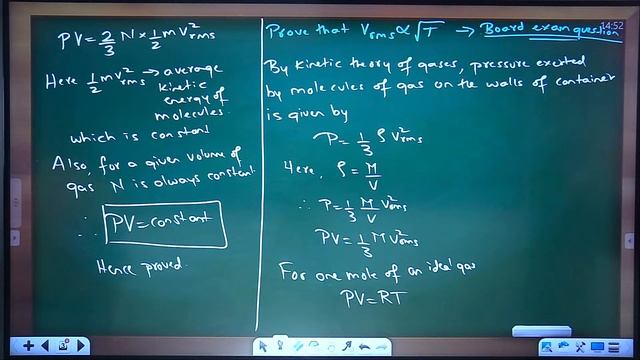 PV = 2/3 N × 1/2 m V²rms
Here 1/2 mv²rms → average
kinetic
energy of
molecules.
which is constant
Also, for a given volume of
gas N is always constant.
∴ PV = constant
Hence proved.
Prove that Vrms ∝ √T → Board exam question
14:52
By Kinetic theory of gases, pressure exerted
by molecules of gas on the walls of container
is given by
P = 1/3 ρ V²rms
Here, ρ = M/V
∴ P = 1/3 M/V V²rms
PV = 1/3 M V²rms
For one mole of an ideal gas
PV = RT